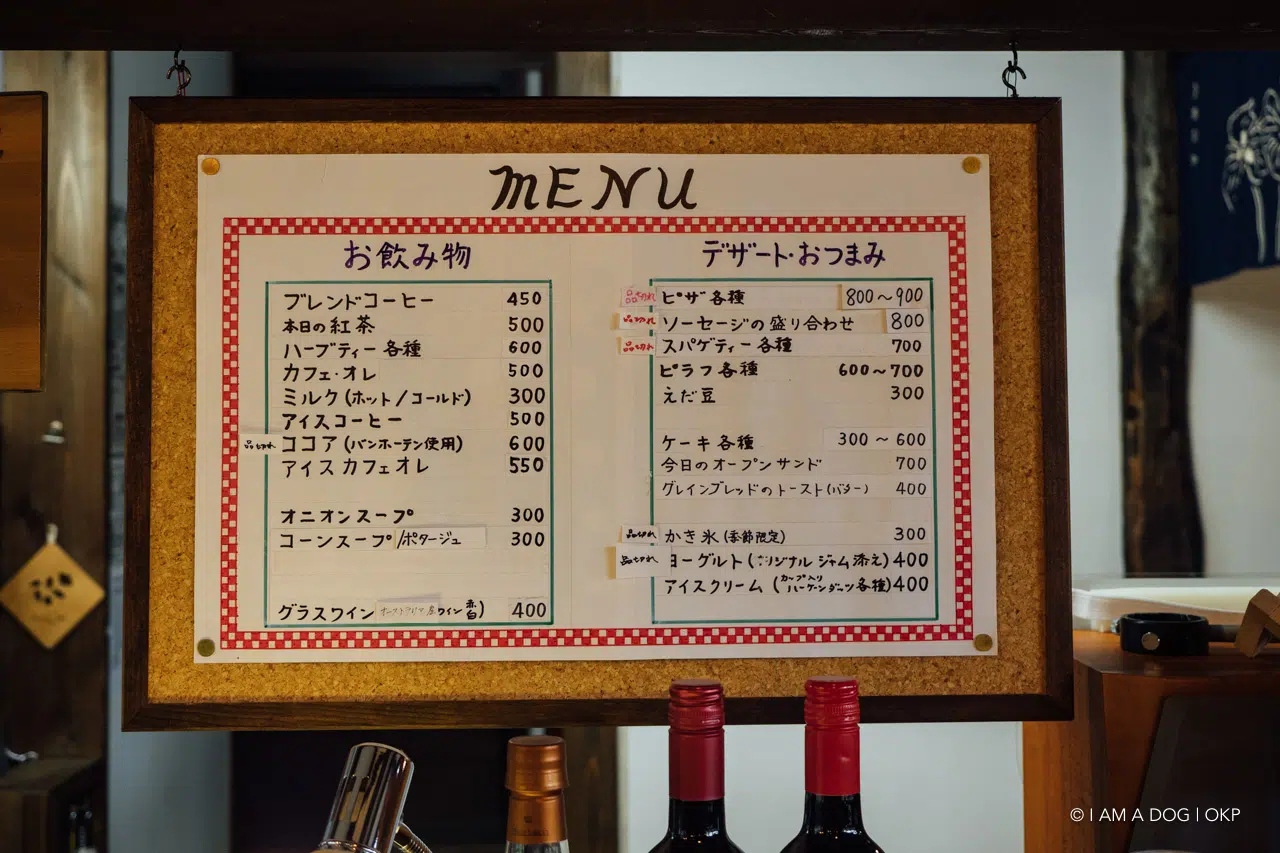 MENU
お飲み物
ブレンドコーヒー 450
本日の紅茶 500
ハーブティー 各種 600
カフェ・オレ 500
ミルク(ホット/コールド) 300
アイスコーヒー 500
品切れ ココア(バンホーテン使用) 600
アイスカフェオレ 550
オニオンスープ 300
コーンスープ/ポタージュ 300
グラスワイン ワイン 赤白) 400
デザート・おつまみ
品切れ ピザ 各種 800～900
品切れ ソーセージの盛り合わせ 800
品切れ スパゲティー 各種 700
ピラフ 各種 600～700
えだ豆 300
ケーキ 各種 300～600
今日のオープンサンド 700
グレインブレッドのトースト(バター) 400
品切れ かき氷(季節限定) 300
品切れ ヨーグルト(オリジナル ジャム添え) 400
アイスクリーム(カップ入りハーゲンダッツ各種) 400
© I AM A DOG | OKP